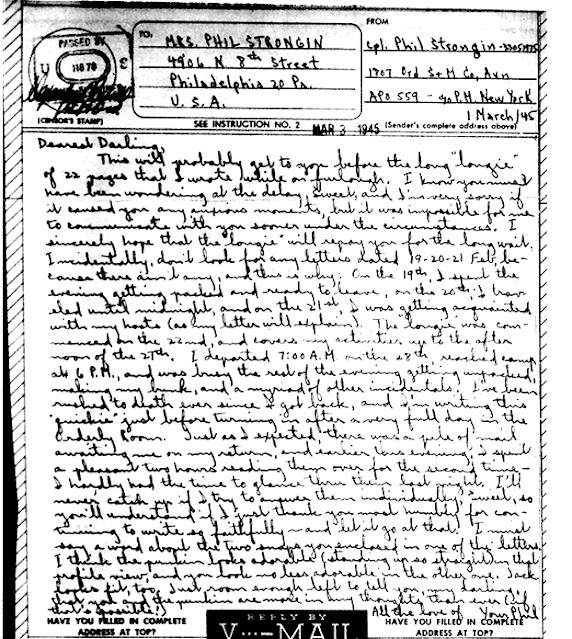 PASSED BY
U S
(CENSOR'S STAMP)
TO:
MRS. PHIL STRONGIN
4906 N. 8th Street
Philadelphia 20 Pa.
U.S.A.
FROM
Cpl. Phil Strongin - 33051975
1807 Ord S+M Co, Avn
APO 559 - % P.M. New York
1 March/45
SEE INSTRUCTION NO. 2
MAR 3 1945
(Sender's complete address above)
Dearest Darling,
This will probably get to you before the long "longie"
of 22 pages that I wrote while on furlough. I know you must
have been wondering at the delay, Sweet, and I'm very sorry if
it caused you any anxious moments, but it was impossible for me
to communicate with you sooner under the circumstances. I
sincerely hope that the "longie" will repay you for the long wait.
Incidentally, don't look for any letters dated 19-20-21 Feb, be-
cause there ain't any, and this is why: On the 19th, I spent the
evening getting packed and ready to leave, on the 20th, I trav-
eled until midnight, and on the 21st, I was getting acquainted
with my hosts (as my letter will explain). The longie was com-
menced on the 22nd, and covers my activities up to the after
noon of the 27th. I departed 7:00 A.M. on the 28th, reached camp
at 6 P.M., and was busy the rest of the evening getting unpacked,
making my bunk, and a myriad of other incidentals. I've been
rushed to death ever since I got back, and I'm writing this
"quickie" just before turning in after a very full day in the
Orderly Room. Just as I expected, there was a pile of mail
awaiting me on my return, and earlier this evening, I spent
a pleasant two hours reading them over for the second time -
I hardly had the time to glance thru them last night. I'll
never catch up if I try to answer them individually, Sweet, so
you'll understand if I just thank you most humbly for con-
tinuing to write so faithfully - and let it go at that! I must
say a word about the two snaps you enclosed in one of the letters.
I think the punkin looks adorable (standing up so straight) in that
profile view, and you look no less adorable in the other one. Jack
too. Just room enough to tell you, darling,
that you and the punkin are more in my thoughts than ever (if
that's possible!) All the love of Your Phil
HAVE YOU FILLED IN COMPLETE
ADDRESS AT TOP?
REPLY BY
V···-MAIL
HAVE YOU FILLED IN COMPLETE
ADDRESS AT TOP?